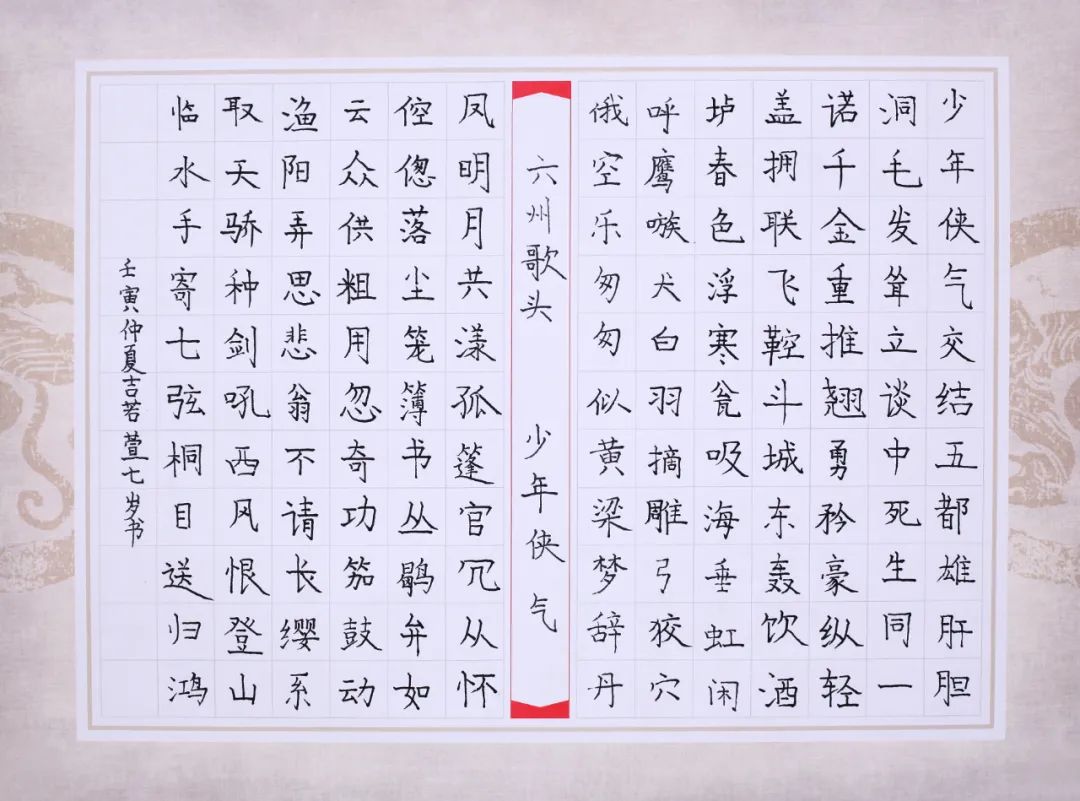 少年侠气交结五都雄肝胆
洞毛发耸立谈中死生同一
诺千金重推翘勇矜豪纵轻
盖拥联飞鞚斗城东轰饮酒
垆春色浮寒瓮吸海垂虹闲
呼鹰嗾犬白羽摘雕弓狡穴
俄空乐匆匆似黄梁梦辞丹
六州歌头 少年侠气
凤明月共漾孤篷官冗从怀
倥偬落尘笼簿书丛鹖弁如
云众供粗用忽奇功笳鼓动
渔阳弄思悲翁不请长缨系
取天骄种剑吼西风恨登山
临水手寄七弦桐目送归鸿
壬寅仲夏吉若萱七岁书